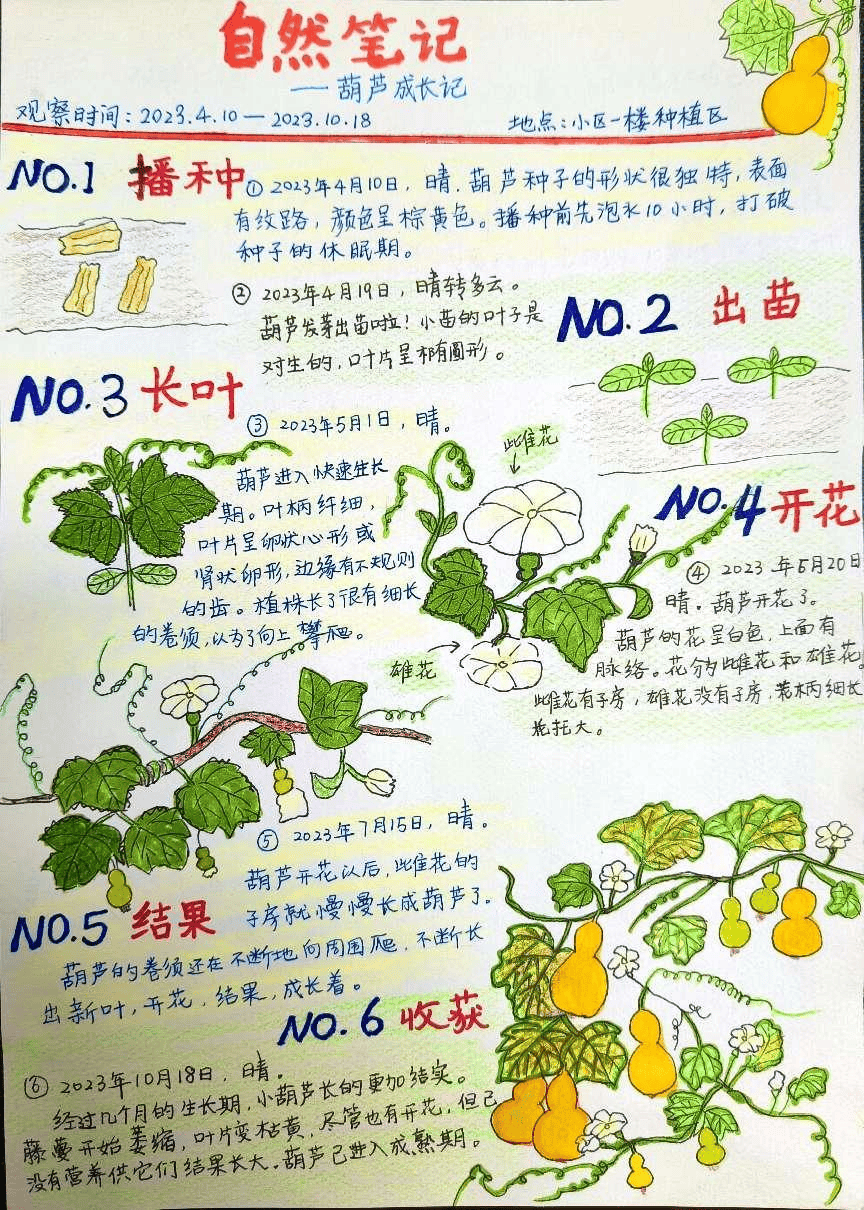 自然笔记
——葫芦成长记
观察时间:2023.4.10—2023.10.18
地点:小区一楼种植区
NO.1 播种
① 2023年4月10日,晴.葫芦种子的形状很独特,表面
有纹路,颜色呈棕黄色。播种前先泡水10小时,打破
种子的休眠期。
② 2023年4月19日,晴转多云。
葫芦发芽出苗啦!小苗的叶子是
对生的,叶片呈椭圆形。
NO.2 出苗
NO.3 长叶
③ 2023年5月1日,晴。
葫芦进入快速生长
期。叶柄纤细,
叶片呈卵状心形或
肾状卵形,边缘有不规则
的齿。植株长了很有细长
的卷须,以为了向上攀爬。
雌花
雄花
NO.4 开花
④ 2023年5月20日
晴.葫芦开花了。
葫芦的花呈白色,上面有
脉络。花分为雌花和雄花
雌花有子房,雄花没有子房,花柄细长
花托大。
⑤ 2023年7月15日,晴。
葫芦开花以后,雌花的
子房就慢慢长成葫芦了。
NO.5 结果
葫芦的卷须还在不断地向周围爬,不断长
出新叶,开花,结果,成长着。
NO.6 收获
⑥ 2023年10月18日,晴。
经过几个月的生长期,小葫芦长的更加结实。
藤蔓开始萎缩,叶片变枯黄,尽管也有开花,但已
没有营养供它们结果长大。葫芦已进入成熟期。